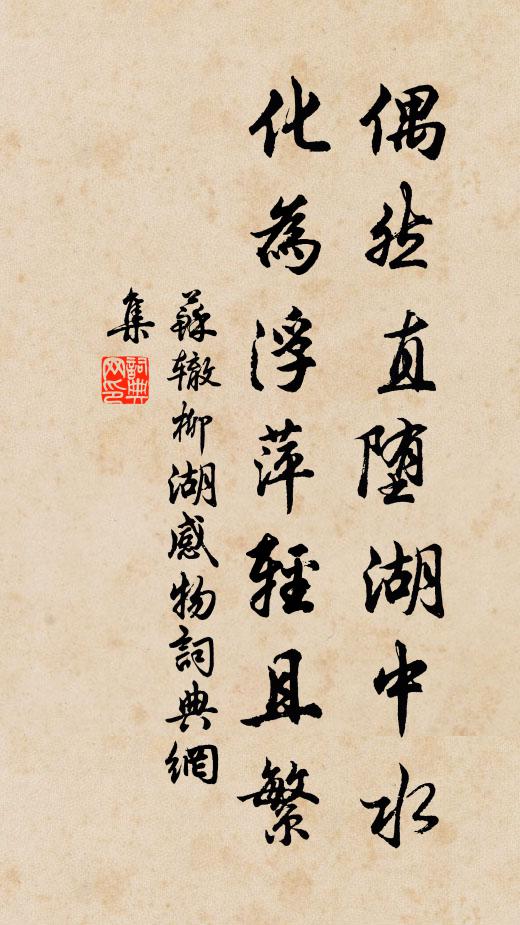 偶然直堕湖中水
化為浮萍輕且繁
蘇辙柳湖感物詞典網
集
詞典网印